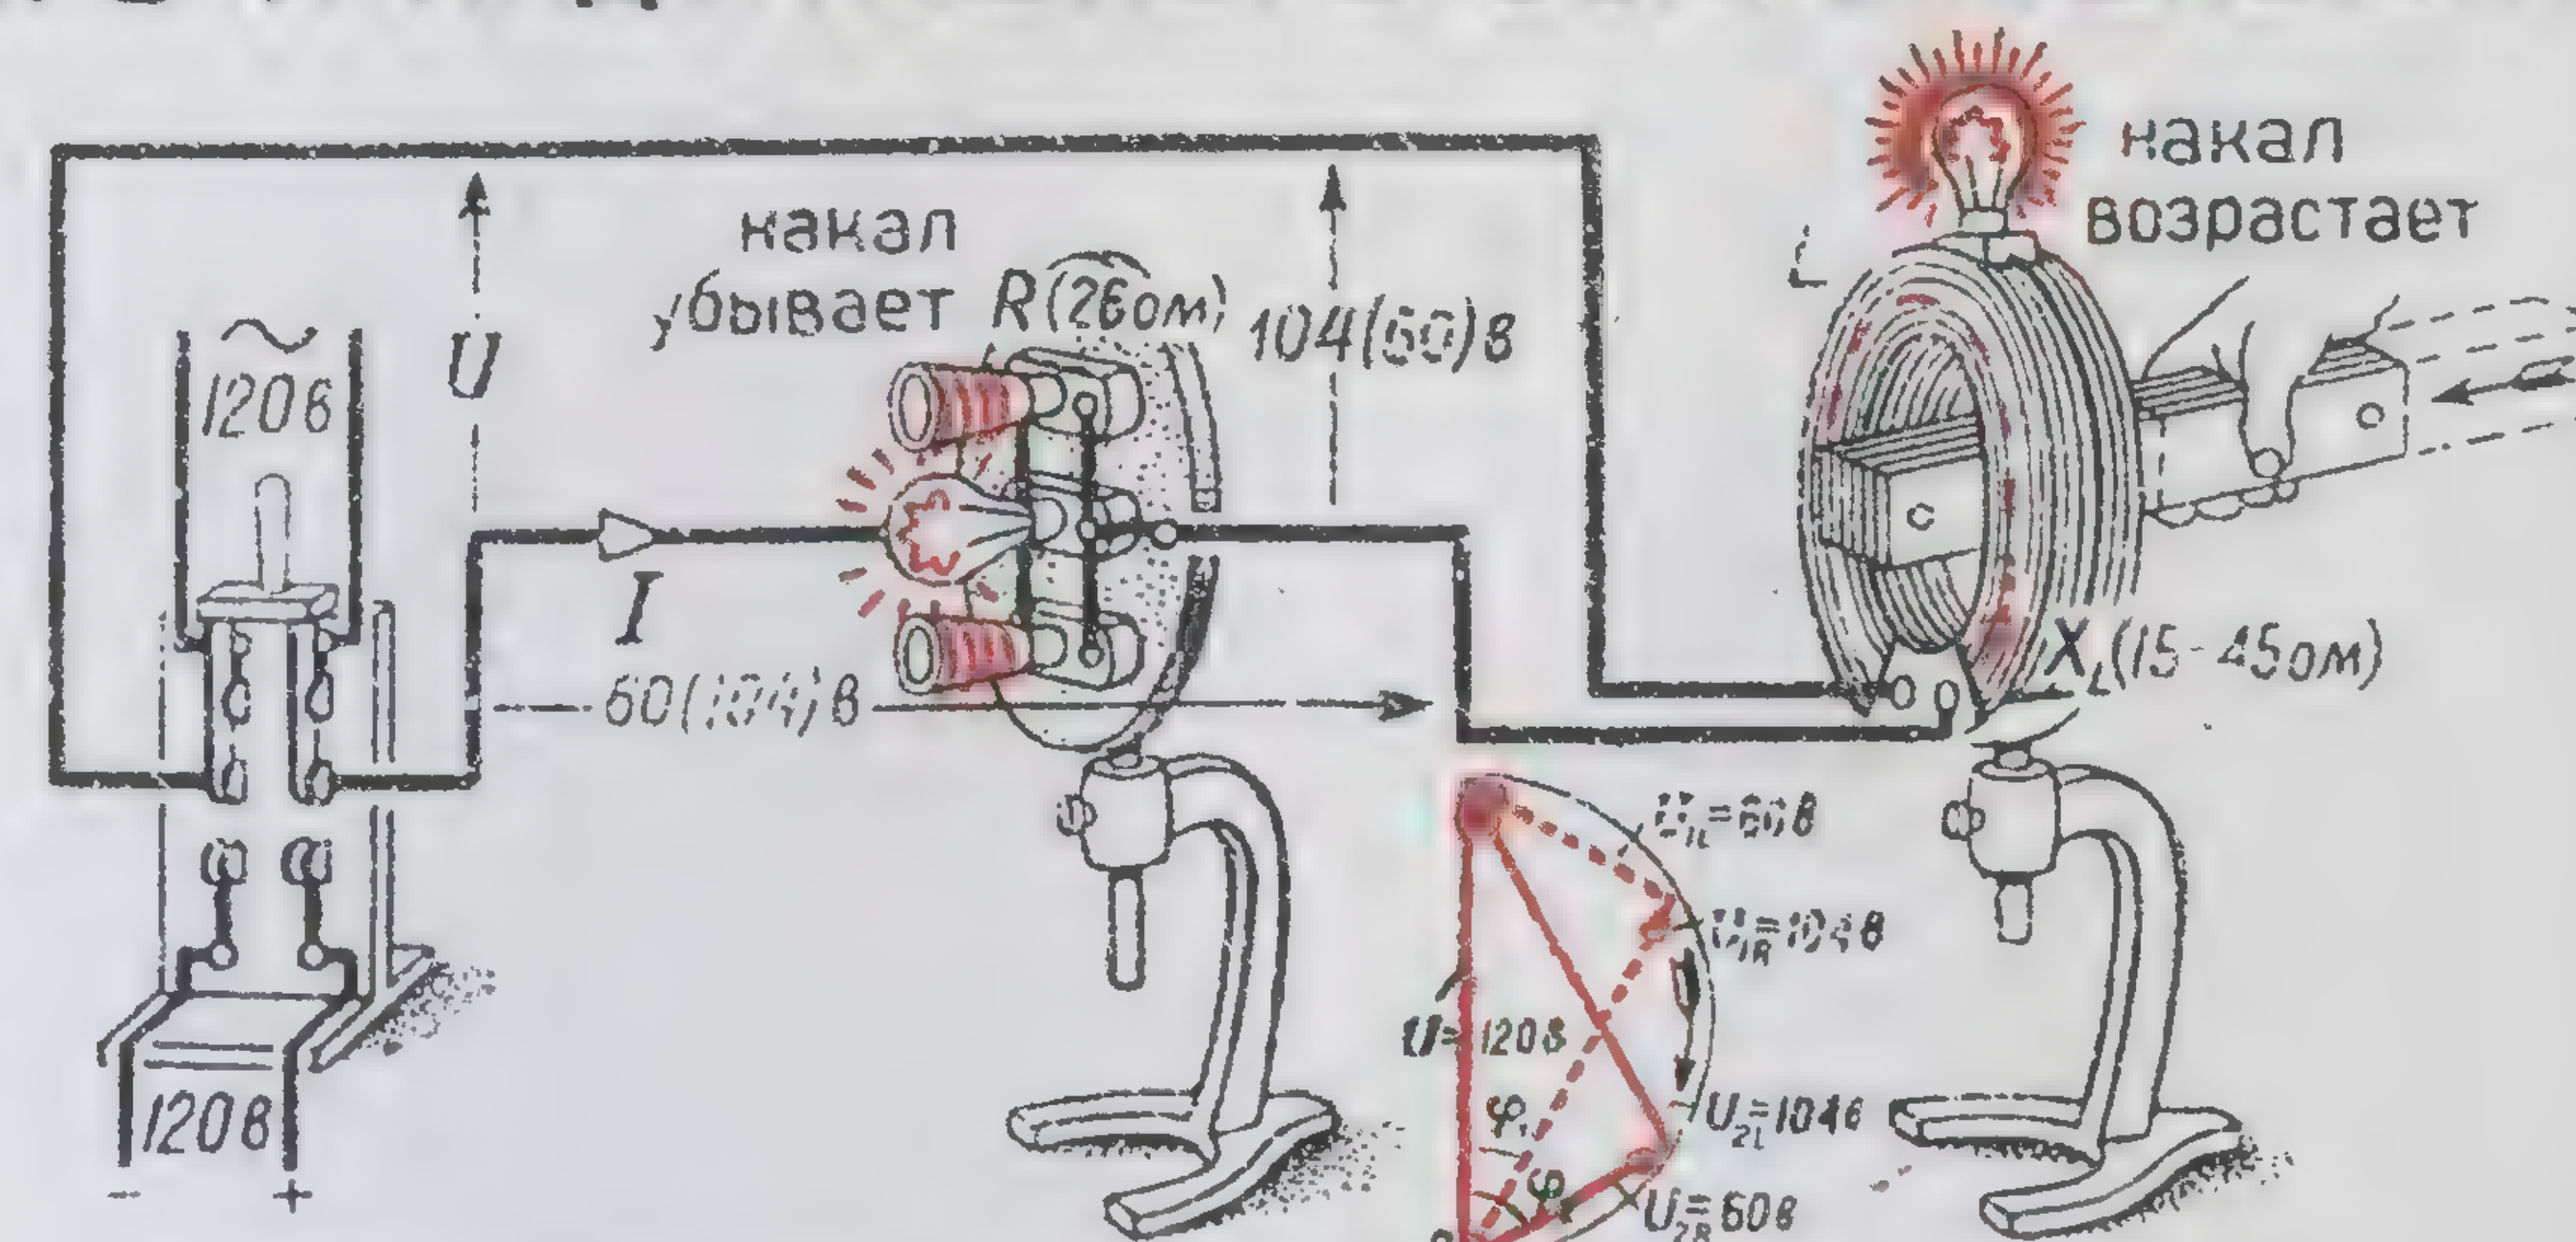 накал
возрастает
L
накал
убывает R(26ом)
104(60)в
~
120в
U
I
60(104)в
X_L(15-45ом)
U₁L=60в
U₁R=104в
U=120в
U₂L=104в
φ₁
φ
U₂R=60в
120в
- +